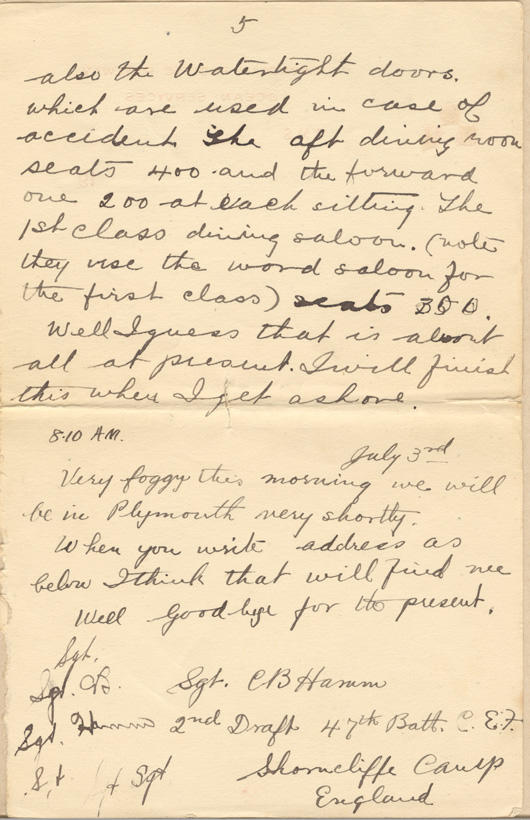 5
also the Watertight doors.
which are used in case of
accident. The aft dining room
seats 400 and the forward
one 200 at each sitting. The
1st class dining saloon. (note
they use the word saloon for
the first class) seats 350.
Well I guess that is about
all at present. I will finish
this when I get ashore.
8:10 AM.
July 3rd
Very foggy this morning we will
be in Plymouth very shortly.
When you write address as
below I think that will find me
Well Goodbye for the present.
Sgt.
Sgt. CB. Sgt. CB Hamm
Sgt. Hamm 2nd Draft 47th Batt. C.E.F.
Sgt
Shorncliffe Camp
England